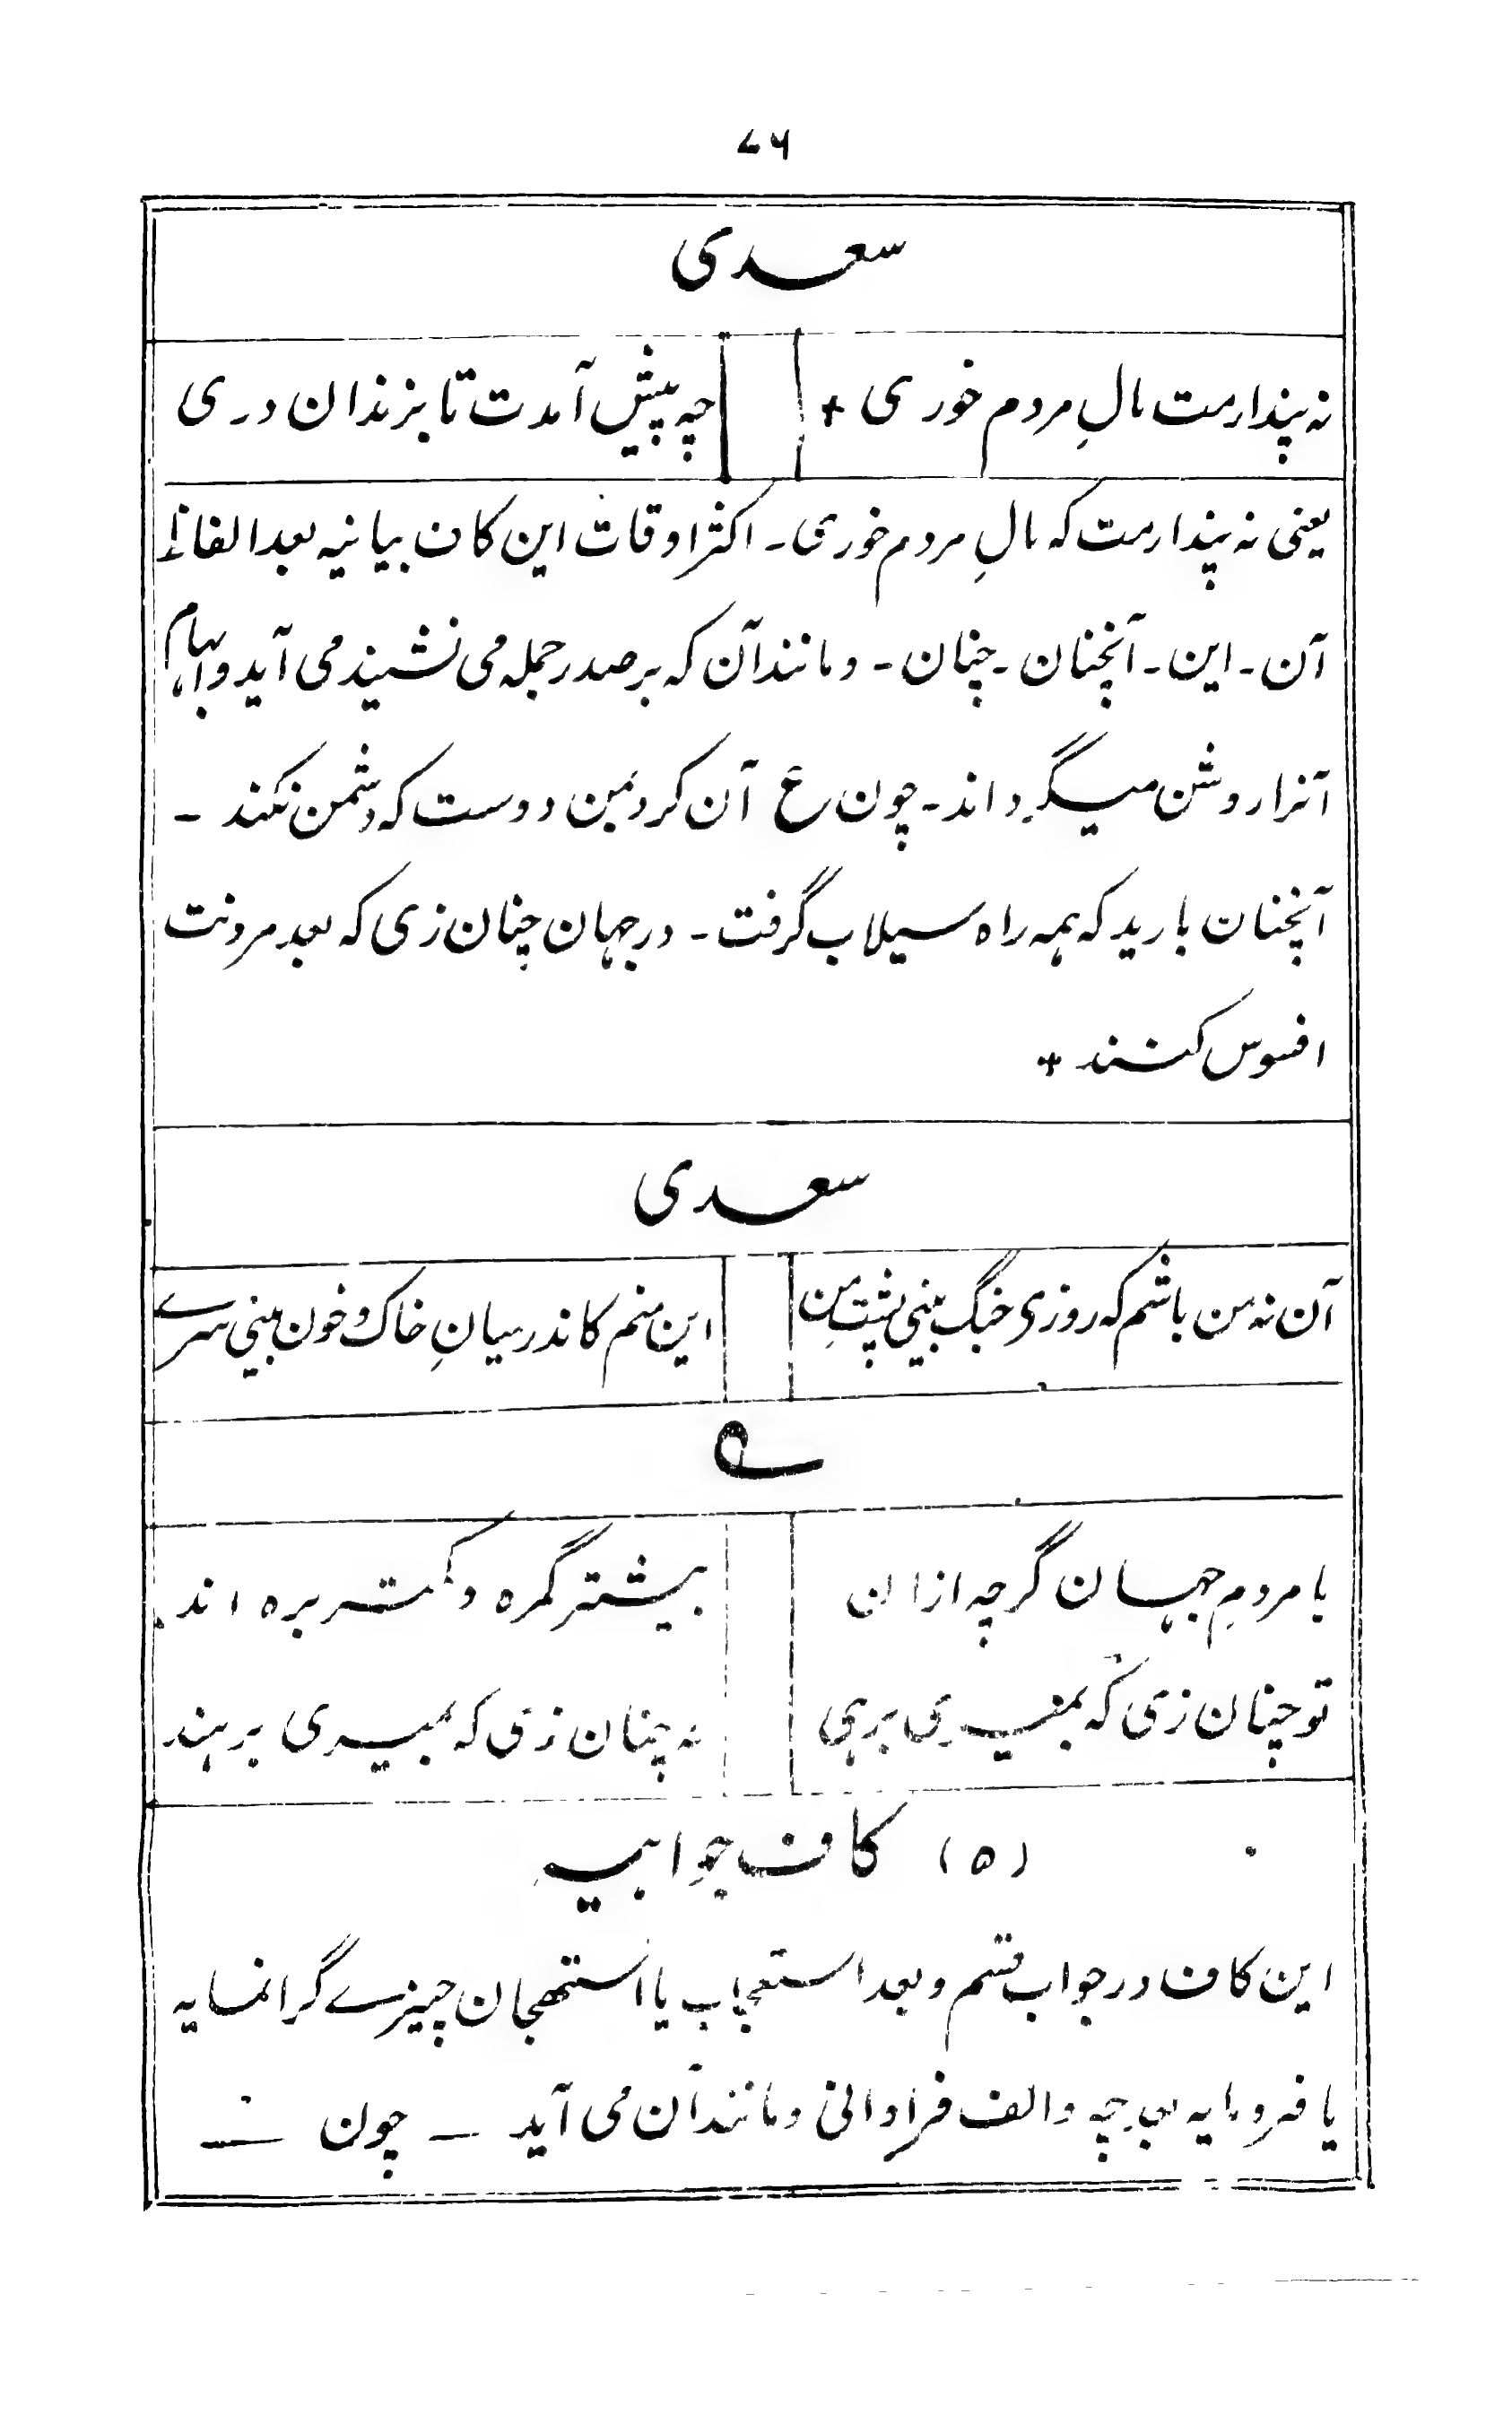 ۷۶
سعدی
نه پندارمت مالِ مردم خوری + چه پیش آمدت تا بزندان دری
یعنی نه پندارمت که مالِ مردم خوری۔ اکثر اوقات این کاف بیانیه بعد الفاظ
آن۔ این۔ آنچنان۔ چنان۔ و مانند آن که بر صدر جمله می نشیند می آید و ابهام
آنرا روشن میگرداند۔ چون ع آن کرد بمن دوست که دشمن نکند ۔
آنچنان بارید که همه راه سیلاب گرفت۔ در جهان چنان زی که بعد مردنت
افسوس کنند +
سعدی
آن نه من باشم که روزی جنگ بینی پشتِ من این منم کاندر میانِ خاک و خون بینی سرے
ے
با مردمِ جهان گرچه از ان بیشتر گمره و کمتر بره اند
تو چنان زی که بمیری برهی نه چنان زی که بمیری برهند
(۵) کاف جوابیه
این کاف در جواب قسم و بعد استعجاب یا استهجان چیزے گرانمایه
یا فرومایه بعد چه و الف فراوانی و مانند آن می آید ــ چون ــ